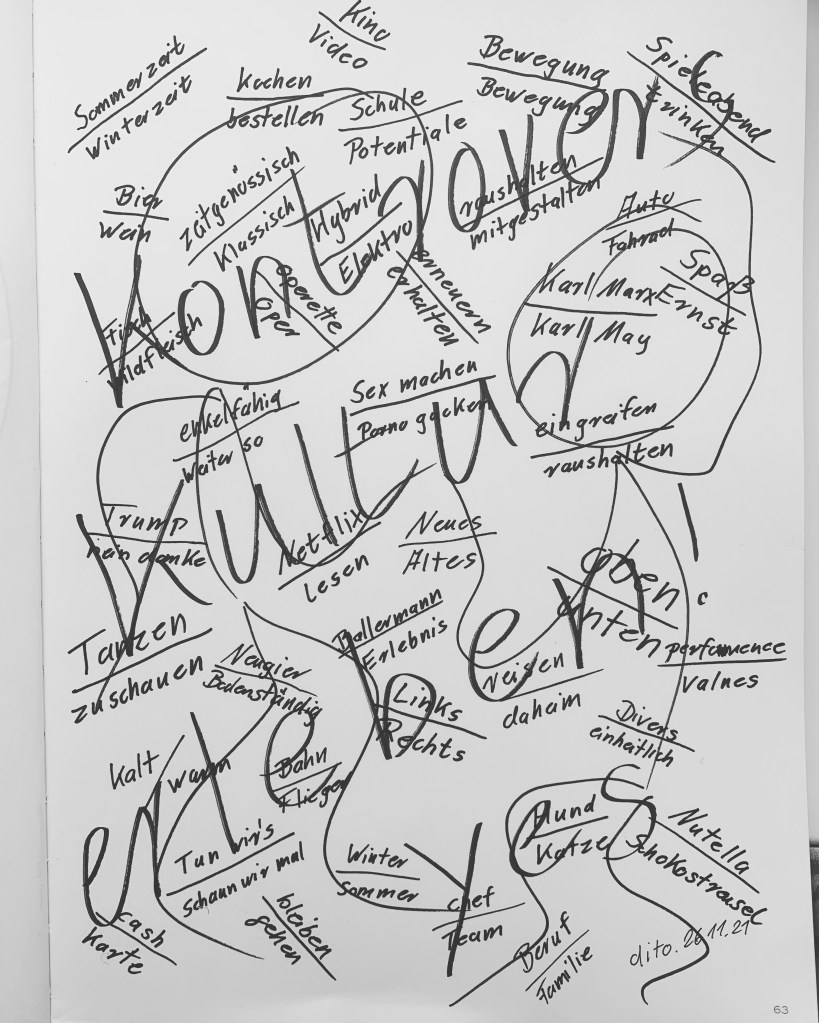 Kino
Video
Sommerzeit
Winterzeit
kochen
bestellen
Schule
Potentiale
Bewegung
Bewegung
Spieleabend
trinken
Bier
Wein
zeitgenössisch
Klassisch
Hybrid
Elektro
raushalten
mitgestalten
Auto
Fahrrad
Kontrovers
Fisch
Wildfleisch
Operette
Oper
erneuern
erhalten
Karl Marx
Karl May
Spaß
Ernst
enkelfähig
weiter so
Sex machen
Porno gucken
eingreifen
raushalten
Kultur
Trump
nein danke
Netflix
Lesen
Neues
Altes
oben
unten
Tanzen
zuschauen
Neugier
Bodenständig
Ballermann
Erlebnis
reisen
daheim
performence
values
Links
Rechts
Divers
einheitlich
Kalt
warm
Bahn
Flieger
Tun wir's
Schaun wir mal
Winter
Sommer
Hund
Katze
Nutella
Schokostreusel
cash
Karte
bleiben
gehen
chef
Team
Beruf
Familie
dito. 26.11.21
63